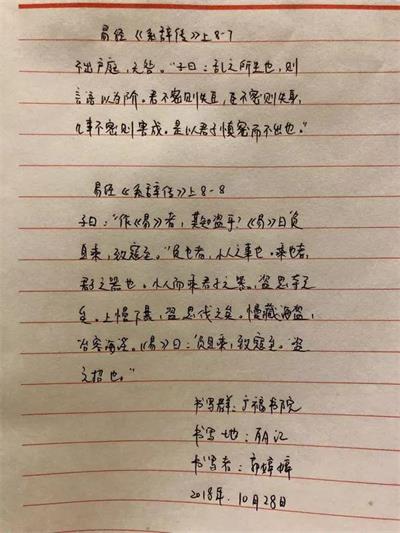 易经《系辞传》上8-7
不出户庭,无咎。"子曰:乱之所生也,则
言语以为阶。君不密则失臣,臣不密则失身,
几事不密则害成。是以君子慎密而不出也。"
易经《系辞传》上8-8
子曰:"作《易》者,其知盗乎?《易》曰负
且乘,致寇至。"负也者,小人之事也。乘也者,
君子之器也。小人而乘君子之器,盗思夺之
矣。上慢下暴,盗思伐之矣。慢藏诲盗,
冶容诲淫。《易》曰:负且乘,致寇至。盗
之招也。"
书写群:广福书院
书写地:丽江
书写者:
2018年.10月28日